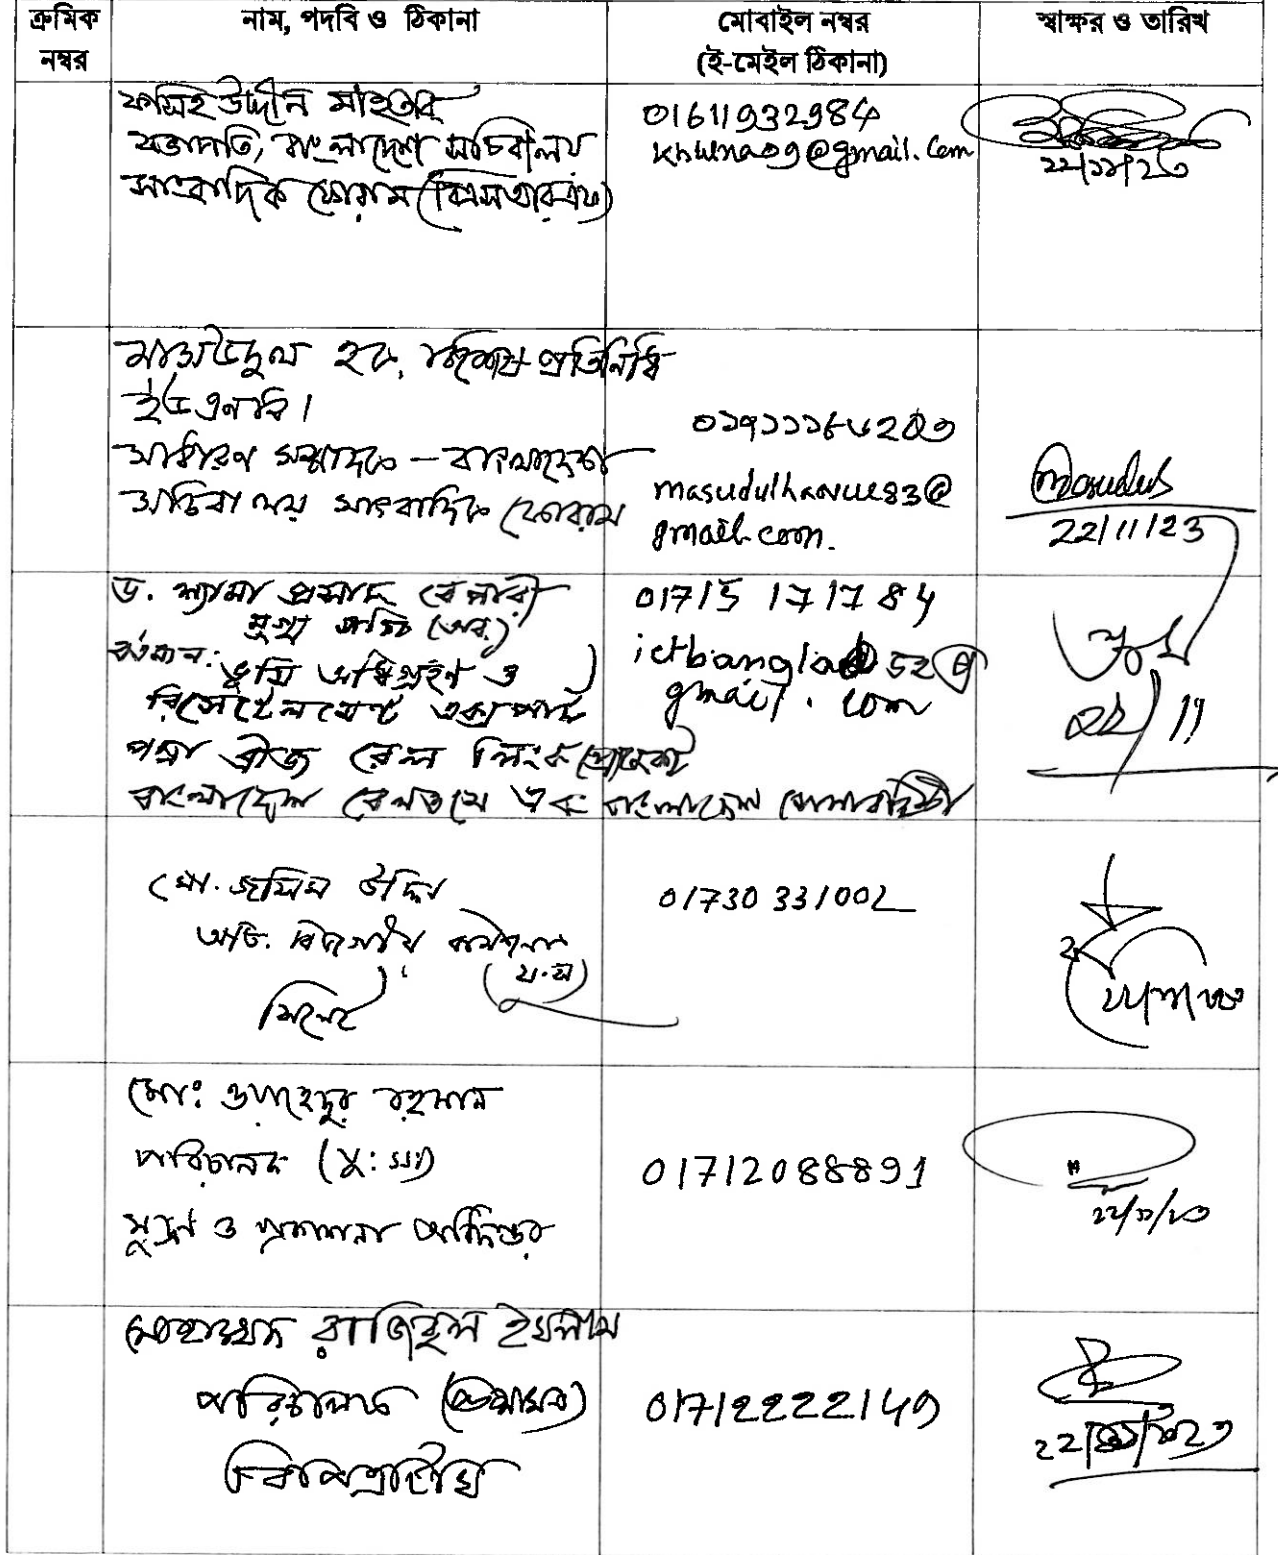 ক্রমিক নম্বর
নাম, পদবি ও ঠিকানা
মোবাইল নম্বর
(ই-মেইল ঠিকানা)
স্বাক্ষর ও তারিখ
ফসিহ উদ্দীন মাহতাব
সভাপতি, বাংলাদেশ সচিবালয়
সাংবাদিক ফোরাম (বিএসআরএফ)
01611932984
@gmail.com
২২/১১/২৩
মাসউদুল হক, বিশেষ প্রতিনিধি
ইউএনবি।
সাধারণ সম্পাদক – বাংলাদেশ
সচিবালয় সাংবাদিক ফোরাম
gmail.com.
Masudul
22/11/23
ড. শ্যামা প্রসাদ বেপারী
যুগ্ম সচিব (অব:)
বর্তমান: ভূমি অধিগ্রহণ ও
রিসেটেলমেন্ট এক্সপার্ট
পদ্মা ব্রীজ রেল লিংক প্রোজেক্ট
বাংলাদেশ রেলওয়ে এবং বাংলাদেশ সেনাবাহিনী
01715 171784
ictbangla52@
gmail.com
মো. জসিম উদ্দিন
অতি. বিভাগীয় কমিশনার
সিলেট
01730 331002
মো: ওয়াহেদুর রহমান
পরিচালক (যু: স:)
মুদ্রণ ও প্রকাশনা অধিদপ্তর
01712088891
২২/১১/২৩
মোহাম্মদ রাজিবুল ইসলাম
পরিচালক
01712222149